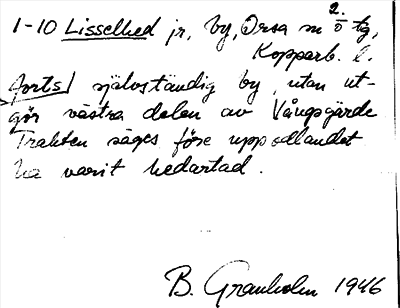 1-10 Lisselhed jr, by, Orsa sn 2. ö tg,
Kopparb. l.
forts / självständig by, utan ut-
gör västra delen av Vångsgärde
Trakten säges före uppodlandet
ha varit hedartad.
B. Granholm 1946